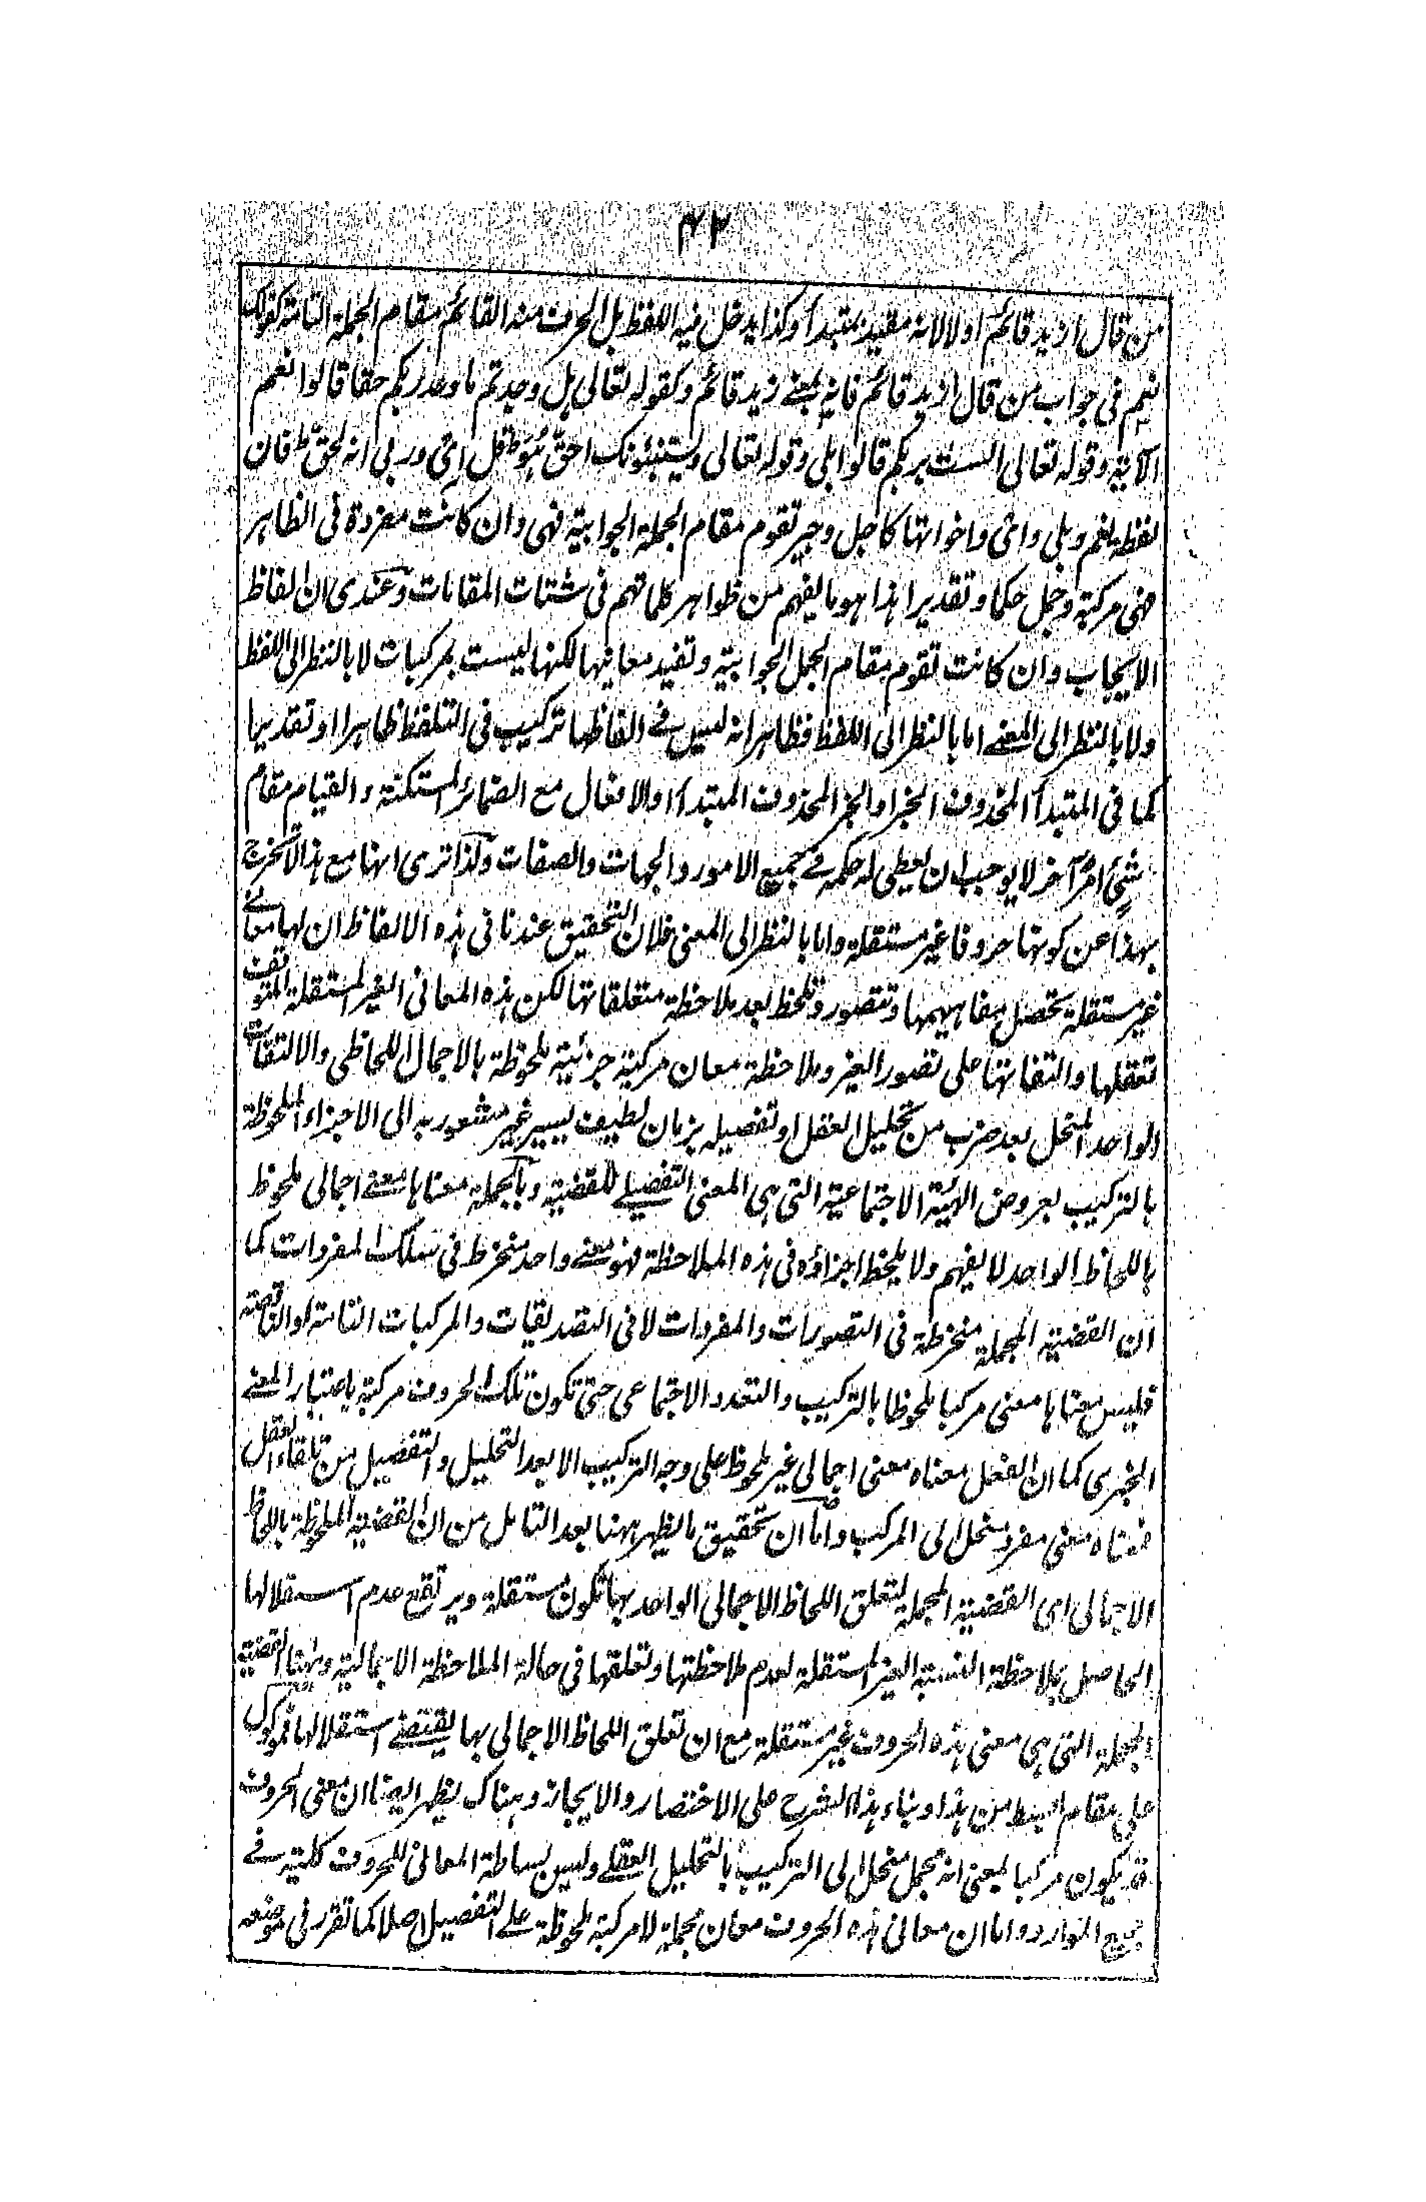 ٤٢
من قال ازيد قائم او لا لانه مقيد بمتبدأ وكذا يدخل فيه اللفظ بل الحرف منه القائم مقام الجملة التامة كقولك
نعم فى جواب من قال ازيد قائم فانه بمعنے زيد قائم وكقوله تعالى هل وجدتم ما وعد ربكم حقا قالوا نعم
الآية وقوله تعالى الست بربكم قالوا بلى وقوله تعالى ويستنبئونك احقّ هُوَ ط قل اِى وربى انه لحقّ ط فان
لفظة نعم وبلى واى واخواتها كاجل وجير تقوم مقام الجملة الجوابية فهى وان كانت مفردة فى الظاهر
فهى مركبة وجمل حكما وتقديرا هذا هو ما يفهم من ظواهر كلماتهم فى شتات المقامات وعندى ان الفاظ
الايجاب وان كانت تقوم مقام الجمل الجوابية وتفيد معانيها لكنها ليست بمركبات لا بالنظر الى اللفظ
ولا بالنظر الى المعنے اما بالنظر الى اللفظ فظاهر انه ليس فے الفاظها تركيب فى التلفظ ظاهرا او تقديرا
كما فى المتبدأ المحذوف الخبر او الخبر المحذوف المبتدأ او الافعال مع الضمائر المستكنة والقيام مقام
شئ امر آخر لا يوجب ان يعطى له حكمه فے جميع الامور والجهات والصفات ولذا ترى انها مع هذا لا تخرج
بهذا عن كونها حروفا غير مستقلة واما بالنظر الى المعنى فلان التحقيق عندنا فى هذه الالفاظ ان لها معانے
غير مستقلة تحصل مفاهيمها وتتصور وتلحظ بعد ملاحظة متعلقاتها لكن هذه المعانى الغير المستقلة المتوقف
تعقلها والتفاتها على تصور الغير وملاحظة معان مركبة جزئية ملحوظة بالاجمال اللحاظى والالتفات
الواحد المنحل بعد ضرب من تحليل العقل او تفصيله بزمان لطيف يسير غير مشعور به الى الاجزاء الملحوظة
بالتركيب بعروض الهيئة الاجتماعية التى هى المعنى التفصيلے للقضية وبالجملة معناها معنے اجمالى ملحوظ
باللحاظ الواحد لا يفهم ولا يلحظ اجزاؤه فى هذه الملاحظة فهو معنے واحد منخرط فى سلك المفردات كما
ان القضية المجملة منخرطة فى التصورات والمفردات لا فى التصديقات والمركبات التامة او الناقصة
فليس معناها معنى مركبا ملحوظا بالتركيب والتعدد الاجتماعى حتى تكون تلك الحروف مركبة باعتبار المعنے
الخبرى كما ان الفعل معناه معنى اجمالى غير ملحوظ على وجه التركيب الا بعد التحليل والتفصيل من تلقاء العقل
فمعناه معنى مفرد منحل الى المركب واما ان تحقيق ما يظهر ههنا بعد التامل من ان القضية الملحوظة باللحاظ
الاجمالى اى القضية المجملة لتعلق اللحاظ الاجمالى الواحد بها تكون مستقلة ويرتفع عدم استقلالها
الحاصل بملاحظة النسبة الغير المستقلة لعدم ملاحظتها وتعلقها فى حالة الملاحظة الاجمالية وههنا القضية
المجملة التى هى معنى هذه الحروف غير مستقلة مع ان تعلق اللحاظ الاجمالى بها يقتضے استقلالها فموكول
على مقام ابسط من هذا وبناء هذا الشرح على الاختصار والايجاز وهناك يظهر ايضا ان معنى الحروف
قد يكون مركبا بمعنى انه مجمل منحل الى التركيب بالتحليل العقلے وليس بساطة المعانى للحروف كلية فے
جميع الموارد واما ان معانى هذه الحروف معان مجملة لا مركبة ملحوظة علے التفصيل اصلا كما تقرر فى موضعه